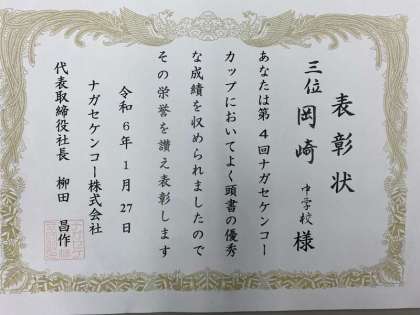 表彰状
三位 岡崎中学校 様
あなたは第4回ナガセケンコー
カップにおいてよく頭書の優秀
な成績を収められましたので
その栄誉を讃え表彰します
令和6年1月27日
ナガセケンコー株式会社
代表取締役社長 柳田 昌作